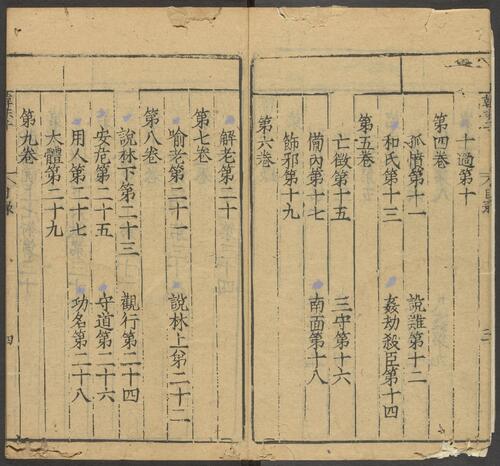 十過第十
第四卷
孤憤第十一 說難第十二
和氏第十三 姦劫殺臣第十四
第五卷
亡徵第十五 三守第十六
備內第十七 南面第十八
飾邪第十九
第六卷
解老第二十
第七卷
喻老第二十一 說林上第二十二
第八卷
說林下第二十三 觀行第二十四
安危第二十五 守道第二十六
用人第二十七 功名第二十八
大體第二十九
第九卷
目錄
四